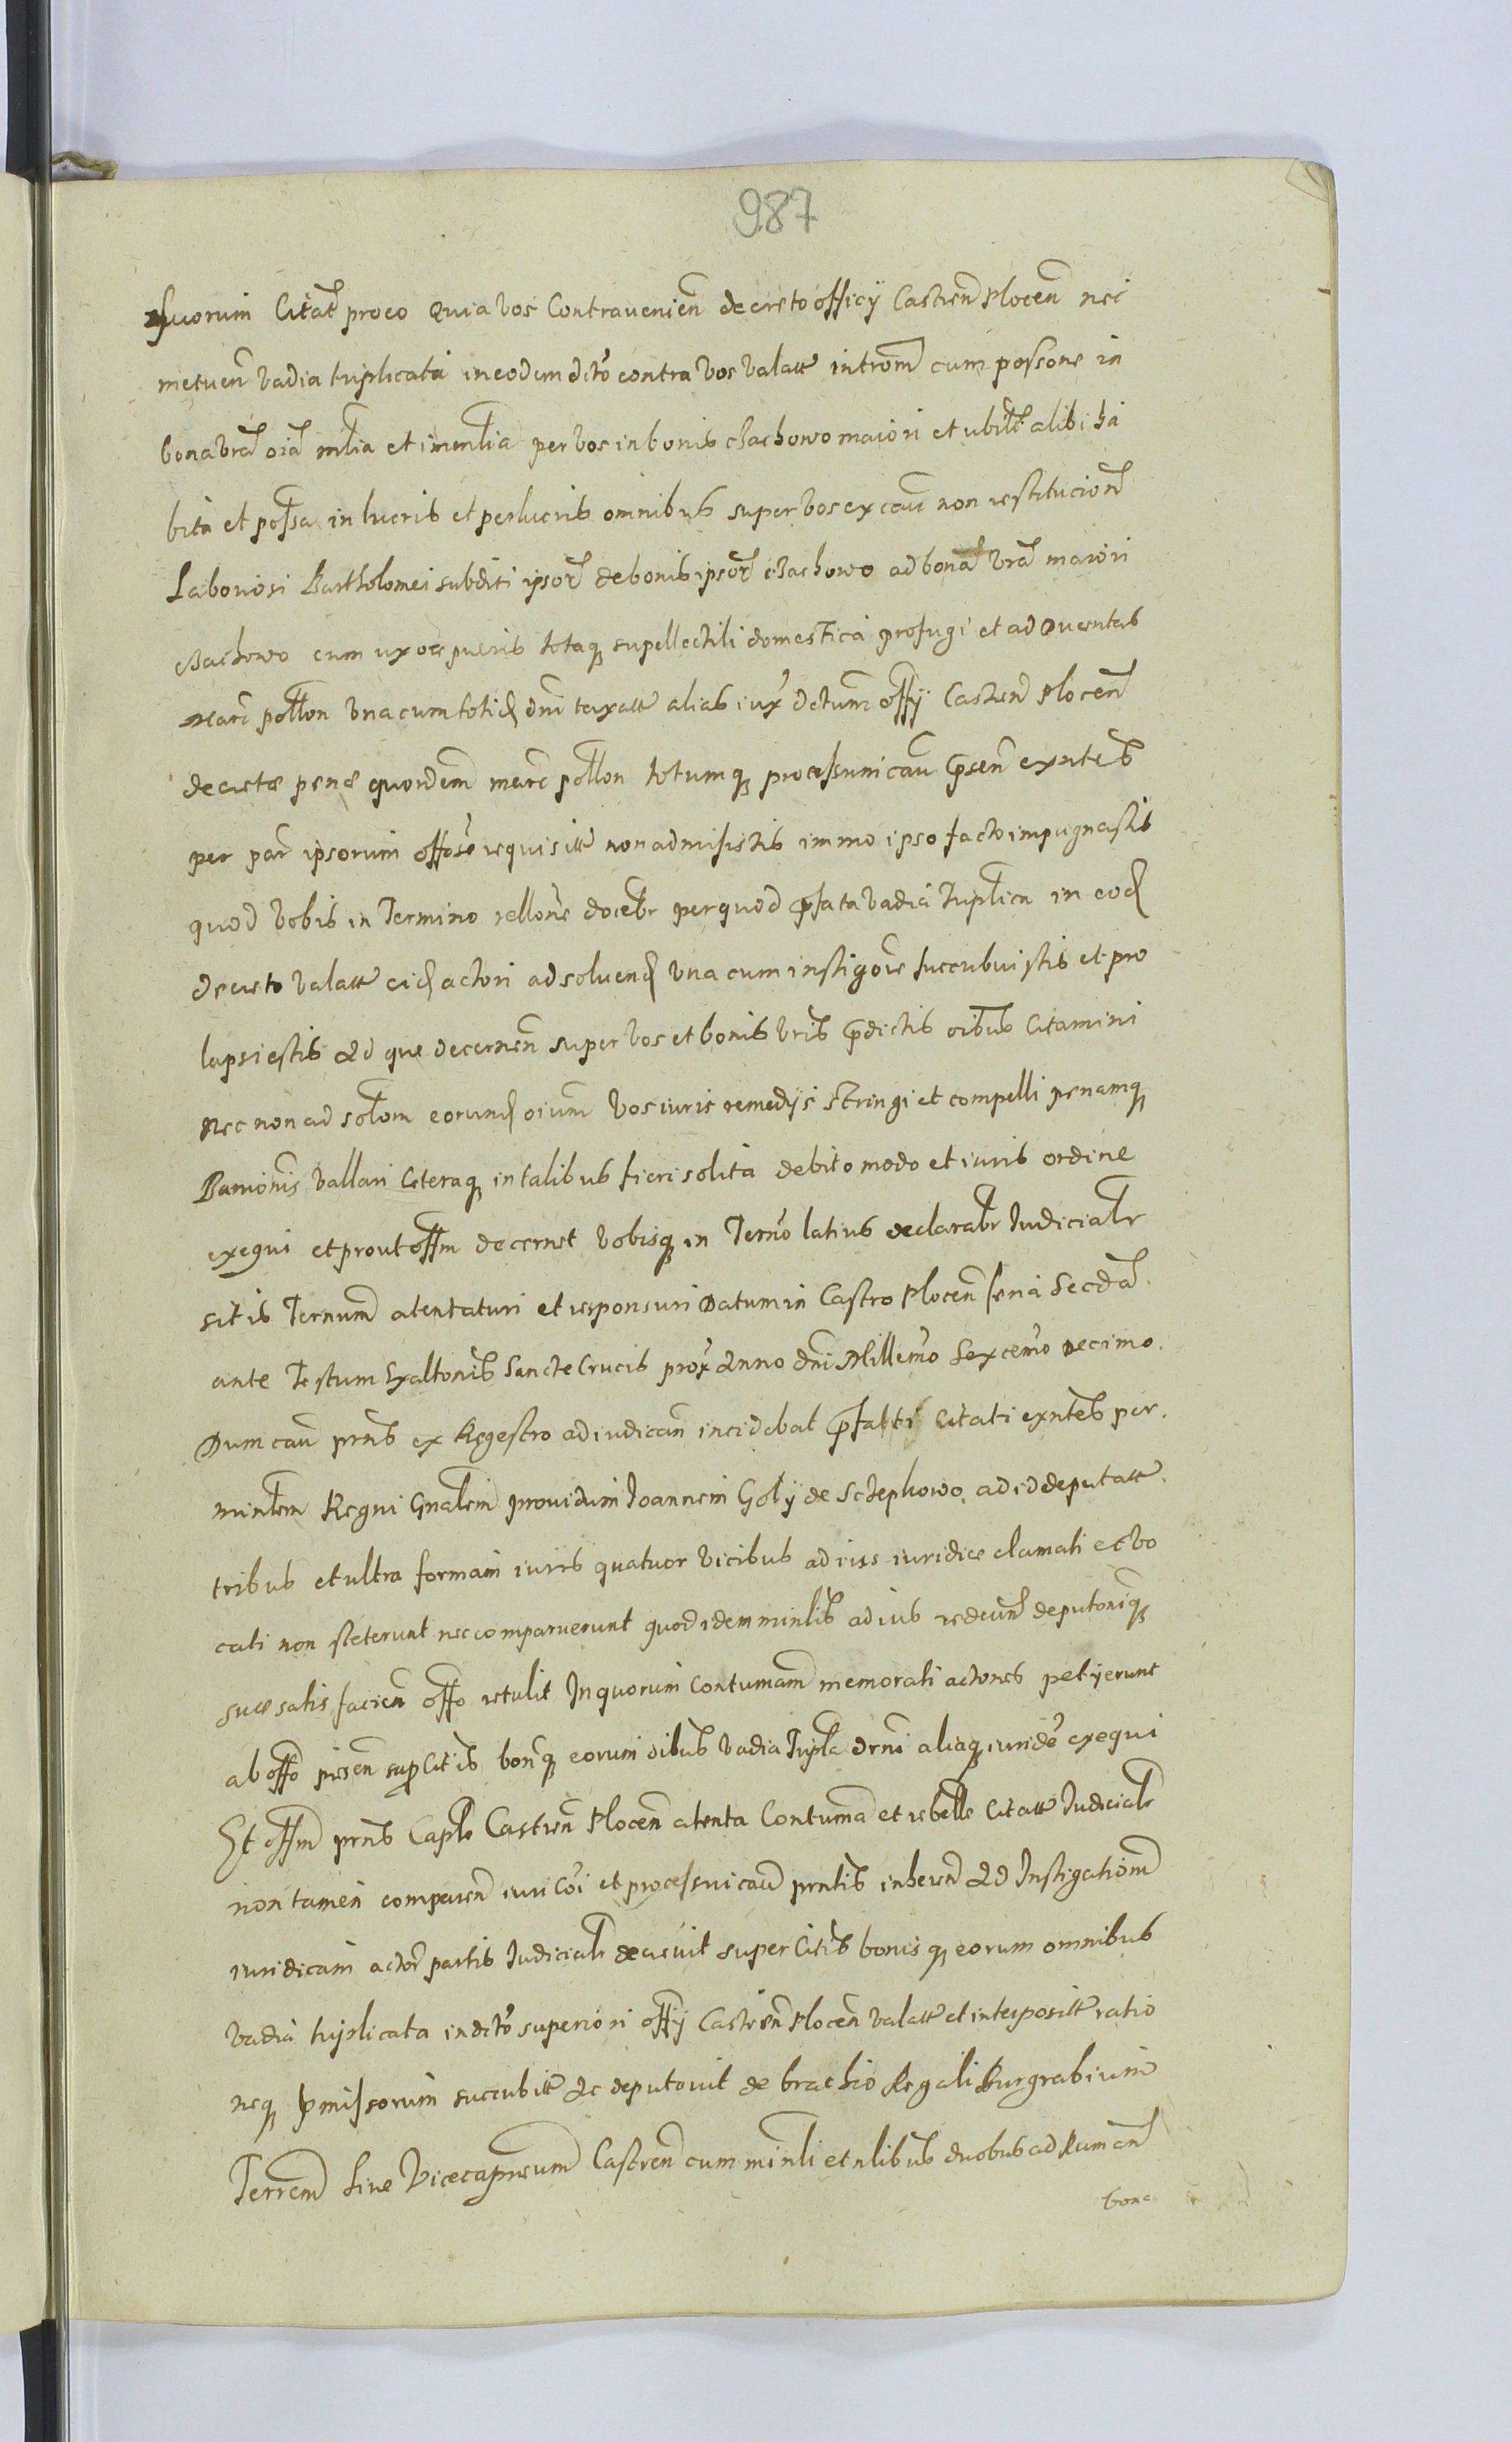 987
quorum Citat proco Quia vos Contravenien decreto officÿ Castren Plocen nec
metuen vadia triplicata in eodem dcto contra vos valatt introm cum possone in
bona vra oia mlia et imenlia per vos in bonis Bachowo maiori et ubilt alibi ha
bita et possa in lucris et perlucris omnibus super vos ex cau non restitucion
Laboriosi Bartholomei subditi ipsor de bonis ipsor Bachowo ad bona vra maiori
Bachowo cum uxore pueris totaq supellectili domestica profugi et advventas
marc pollon Una cum totid dni taxatt alias iux dctum offÿ Castren Plocen
decretae penae quordem marc pollon totumq processum cau psen exntes
per par ipsorum offose requisitt non admisistis immo ipso facto impugnastis
quod vobis in Termino rellons docebr per quod pfata vadia triplica in eod
decreto valatt eid actori ad solvend Una cum instigore succubuistis et pro
lapsi estis Ad que decernen super vos et bonis vris pdictis oibus Citamini
nec non ad solom eorund oium vos iuris remedÿs stringi et compelli penamq
Banionis vallari Ceteraq in talibus fieri solita debito modo et iuris ordine
exequi et prout offm decernet vobisq in Terno latius declarabr Judicialr
sitis Ternum atentaturi et responsuri Datum in Castro Plocen feria Secda
ante Festum Exaltonis Sancte Crucis prox Anno dni Millemo Sexcemo Decimo.
Dum cau prns ex Regestro ad iudican incidebat pfati Citati exntes per
minlem Regni Gnalem providum Joannem Golÿ de Sczephowo ad id deputatt
tribus et ultra formam iuris quatuor vicibus ad ius iuridice clamati et vo
cati non steterunt nec comparuerunt quod idem minlis ad ius redeun deputoniq
suae satis facien offo retulit In quorum Contumam memorati actores petÿerunt
ab offo pnsen sup Citis bonq eorum oibus vadia Trypla drni aliaq iuride exequi
Et offm prns Caplo Castren Plocen atenta Contuma et rebelle Citatt Judicialr
non tamen comparen iuri Coi et processui cau prntis inheren Ad Instigationm
iuridicam actor partis Judicialr decrevit super Citis bonis q eorum omnibus
vadia triplicata in dcto superiori offÿ Castren Plocen valatt et interpositt ratio
neq pmissorum succubitt Ac deputavit de brachio Regali Burgrabium
Terrem sive Vicecapneum Castren cum minli et nlibus duobus ad Ruman
bona